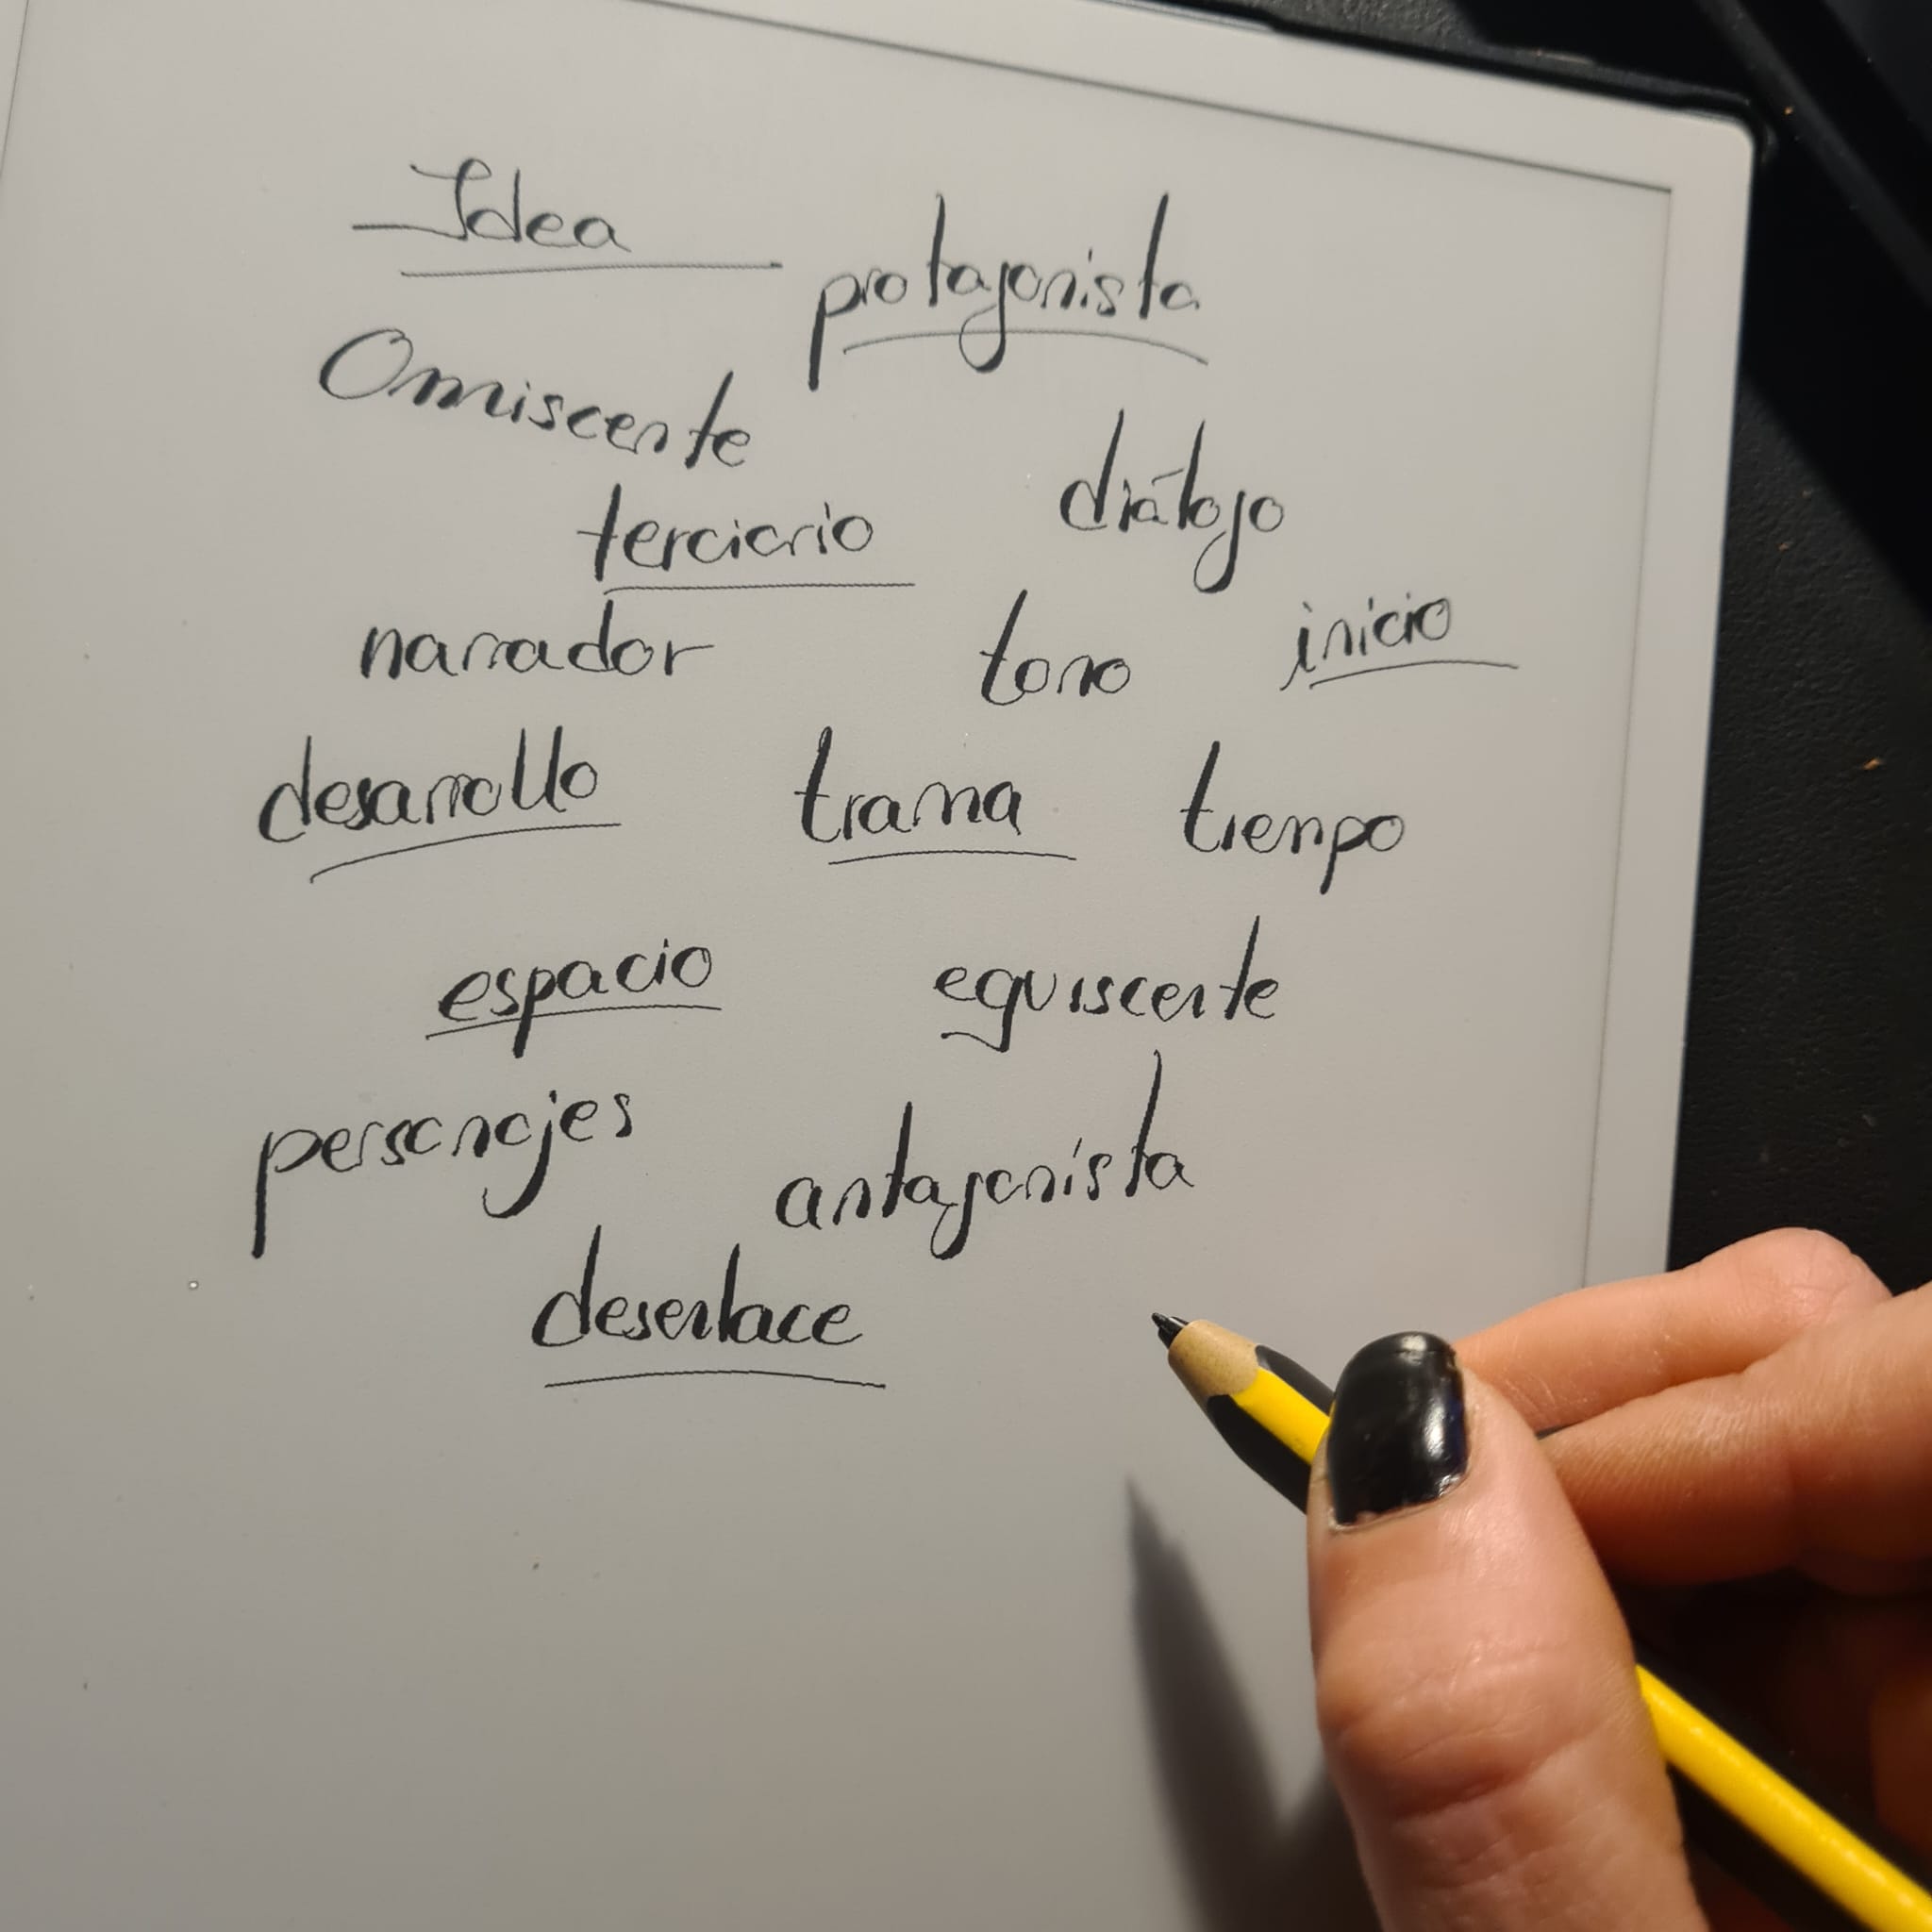 Idea
protagonista
Omniscente
terciario diálogo
narrador tono inicio
desarrollo trama tiempo
espacio equiscente
personajes antagonista
desenlace